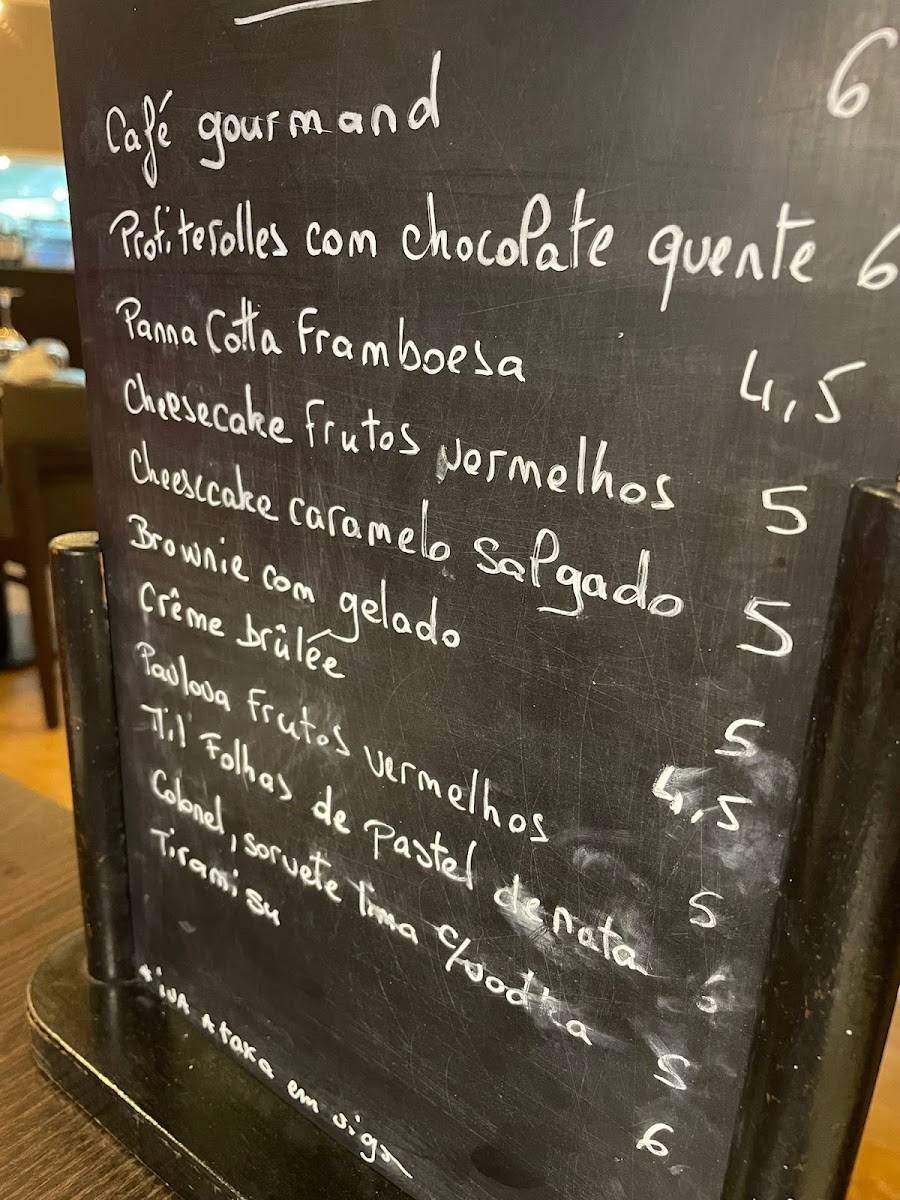 Café gourmand 6
Profiterolles com chocolate quente 6
Panna Cotta Framboesa 4,5
Cheesecake frutos vermelhos 5
Cheesecake caramelo salgado 5
Brownie com gelado 5
Crême brûlée 4,5
Pavlova Frutos vermelhos 5
Mil Folhas de Pastel de nata 6
Colonel, sorvete lima c/vodka 5
Tiramisu 6
*iva a taxa em vigor